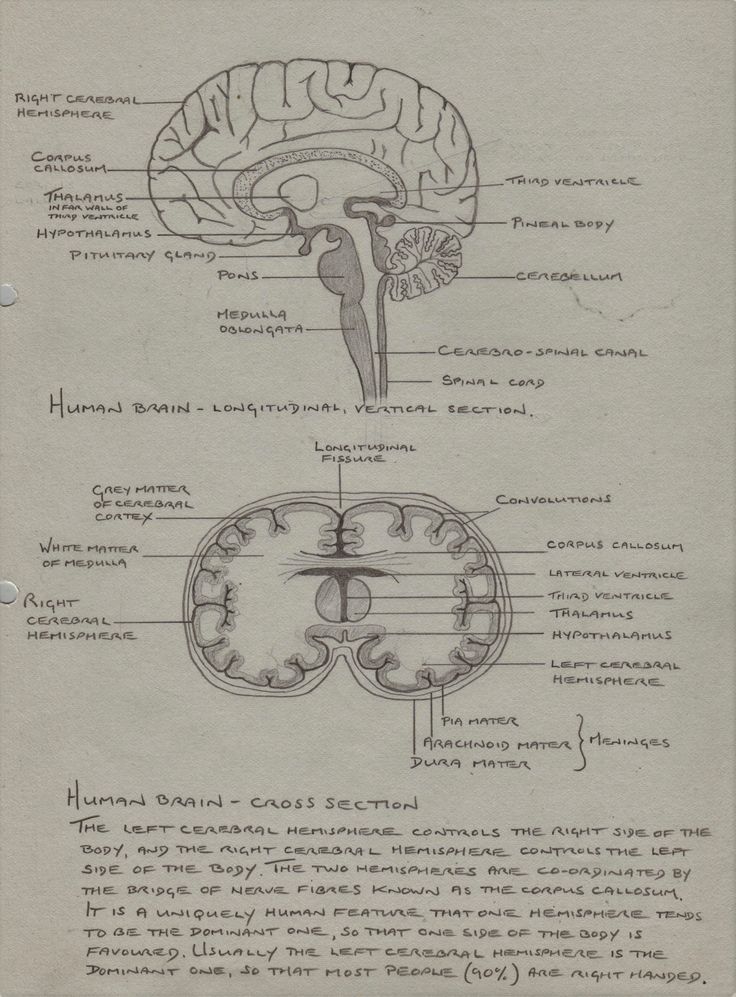 RIGHT CEREBRAL
HEMISPHERE
CORPUS
CALLOSUM
THALAMUS
IN FAR WALL OF
THIRD VENTRICLE
HYPOTHALAMUS
PITUITARY GLAND
PONS
MEDULLA
OBLONGATA
THIRD VENTRICLE
PINEAL BODY
CEREBELLUM
CEREBRO-SPINAL CANAL
SPINAL CORD
HUMAN BRAIN - LONGITUDINAL, VERTICAL SECTION.
LONGITUDINAL
FISSURE
GREY MATTER
OF CEREBRAL
CORTEX
WHITE MATTER
OF MEDULLA
RIGHT
CEREBRAL
HEMISPHERE
CONVOLUTIONS
CORPUS CALLOSUM
LATERAL VENTRICLE
THIRD VENTRICLE
THALAMUS
HYPOTHALAMUS
LEFT CEREBRAL
HEMISPHERE
PIA MATER
ARACHNOID MATER
DURA MATER
MENINGES
HUMAN BRAIN - CROSS SECTION
THE LEFT CEREBRAL HEMISPHERE CONTROLS THE RIGHT SIDE OF THE
BODY, AND THE RIGHT CEREBRAL HEMISPHERE CONTROLS THE LEFT
SIDE OF THE BODY. THE TWO HEMISPHERES ARE CO-ORDINATED BY
THE BRIDGE OF NERVE FIBRES KNOWN AS THE CORPUS CALLOSUM.
IT IS A UNIQUELY HUMAN FEATURE THAT ONE HEMISPHERE TENDS
TO BE THE DOMINANT ONE, SO THAT ONE SIDE OF THE BODY IS
FAVOURED. USUALLY THE LEFT CEREBRAL HEMISPHERE IS THE
DOMINANT ONE, SO THAT MOST PEOPLE (90%) ARE RIGHT HANDED.